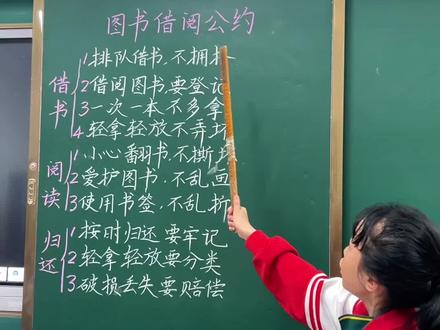 图书借阅公约
借书
1排队借书,不拥
2借阅图书,要登记
3一次一本不多拿
4轻拿轻放不弄坏
阅读
1小心翻书,不撕
2爱护图书,不乱画
3使用书签,不乱折
归还
1按时归还要牢记
2轻拿轻放要分类
3破损丢失要赔偿